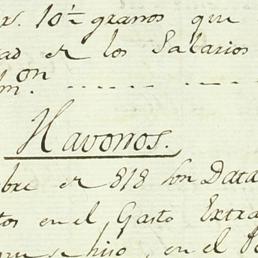 10½ granos que
ad de los Salarios
m.on
Havonos.
bre de 818 son Data
tos en el Gasto Extra
que se hizo, en el